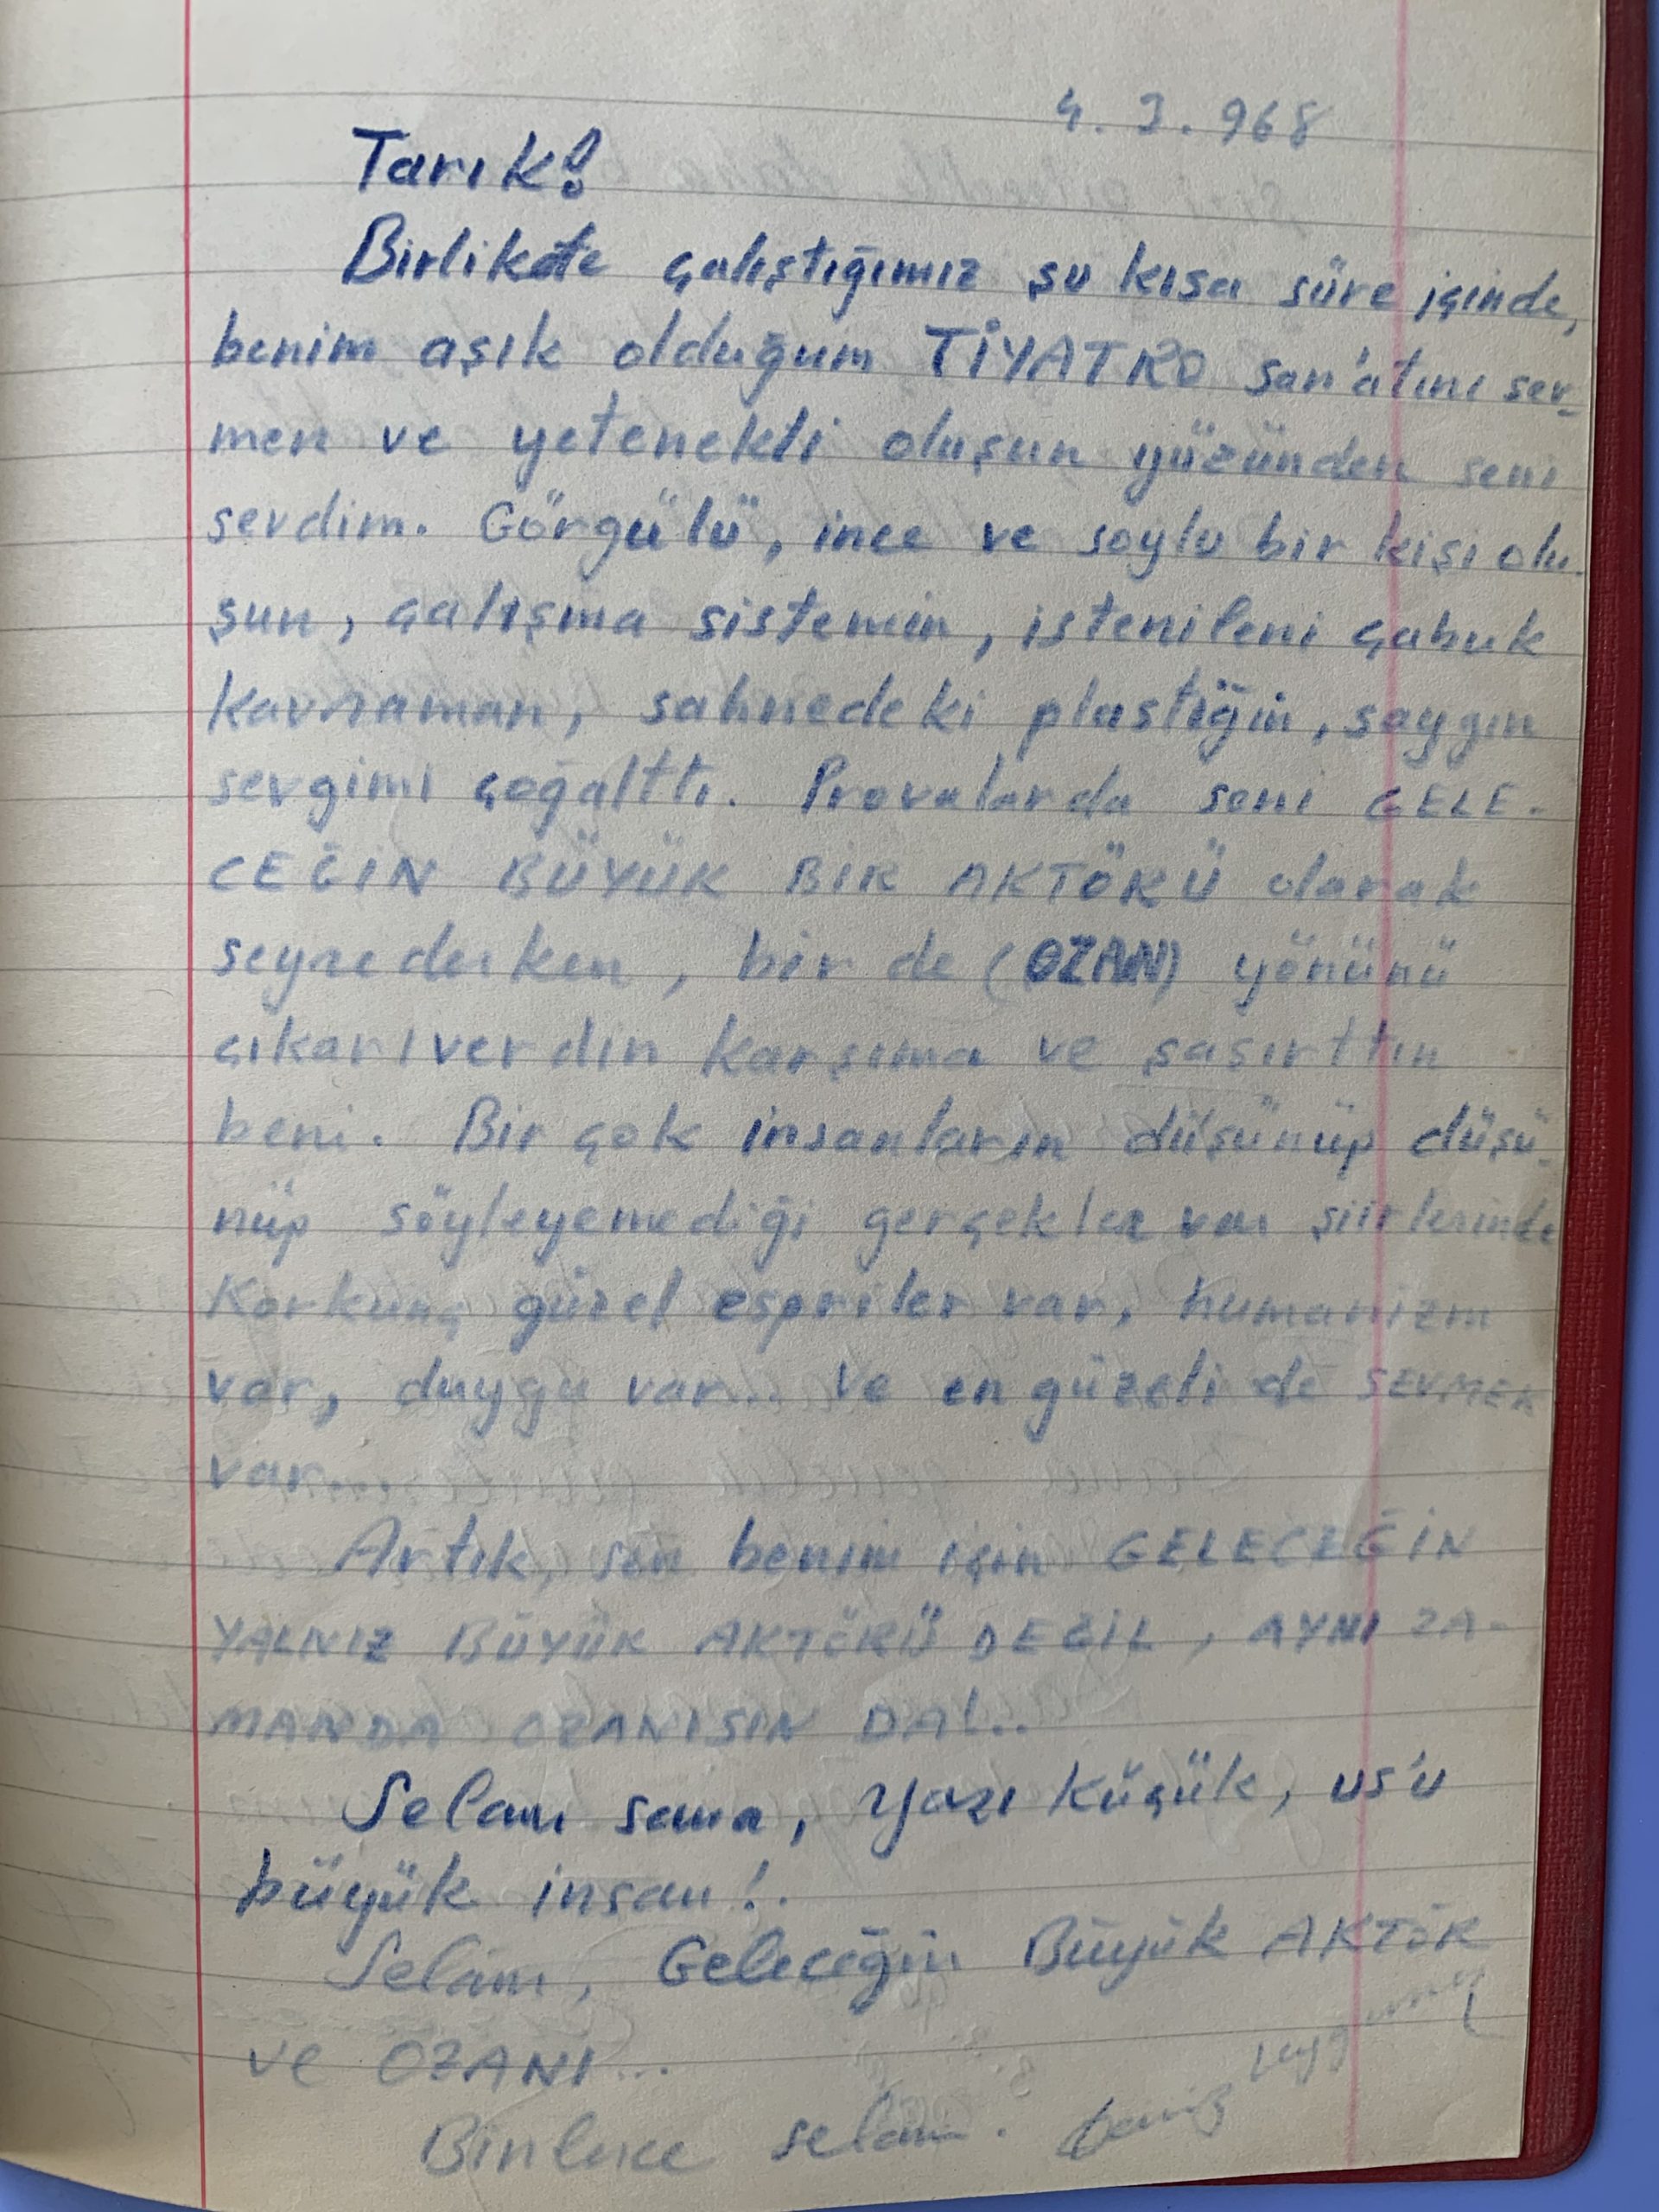 4. 3. 968
Tarık!
Birlikte çalıştığımız şu kısa süre içinde,
benim aşık olduğum TİYATRO san'atını sev-
men ve yetenekli oluşun yüzünden seni
sevdim. Görgülü, ince ve soylu bir kişi olu-
şun, çalışma sistemin, istenileni çabuk
kavraman, sahnedeki plastiğin, saygın
sevgimi çoğalttı. Provalarda seni GELE-
CEĞİN BÜYÜK BİR AKTÖRÜ olarak
seyrederken, bir de (OZAN) yönünü
çıkarıverdin karşıma ve şaşırttın
beni. Bir çok insanların düşünüp düşü-
nüp söyleyemediği gerçekler var şiirlerinde
Korkunç güzel espriler var, humanizm
var, duygu var... ve en güzeli de SEVMEK
var....
Artık, sen benim için GELECEĞİN
YALNIZ BÜYÜK AKTÖRÜ DEĞİL, AYNI ZA-
MANDA OZANISIN DA!..
Selam sana, Yazı küçük, us'u
büyük insan!.
Selam, Geleceğin Büyük AKTÖR
ve OZANI...
Binlerce selam.